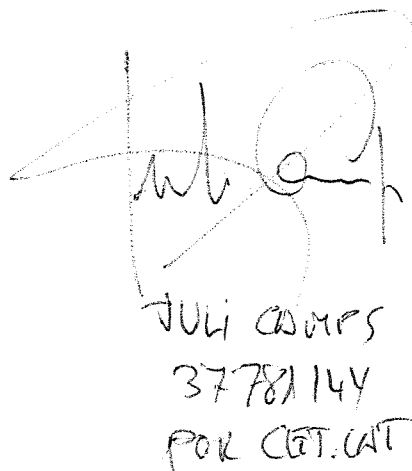 JULI CAMPS
37781144
POR CET.CAT